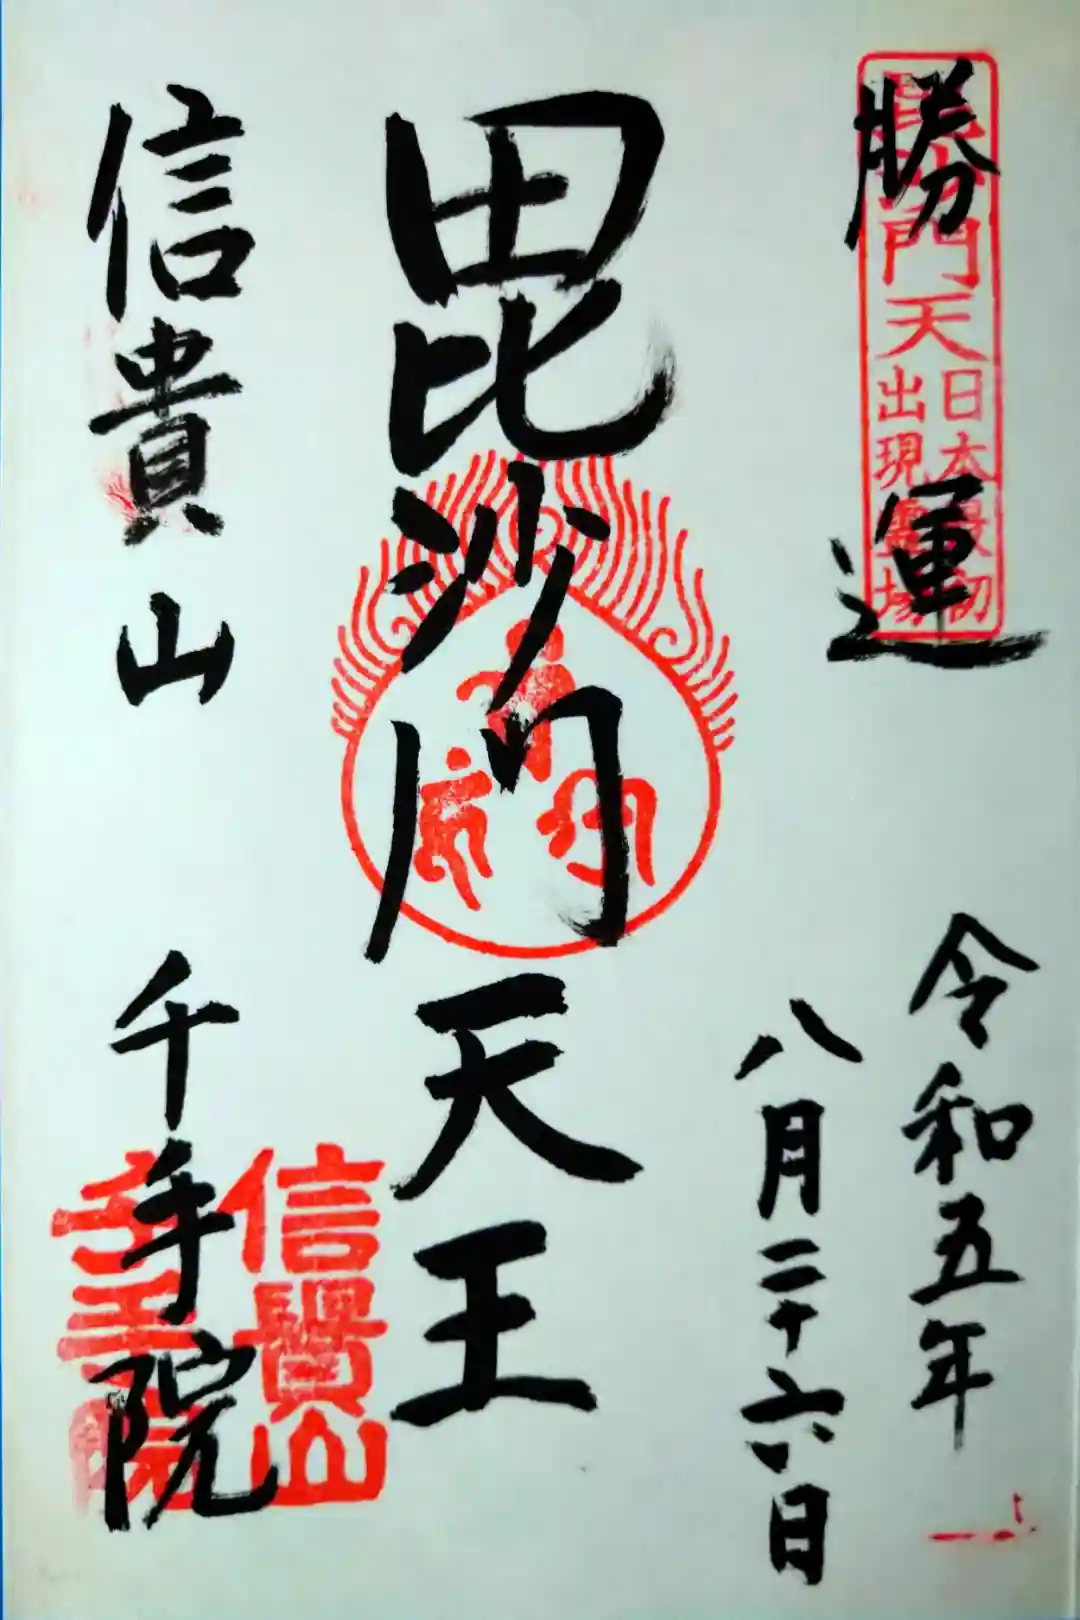 勝運
毘沙門天
日本最初
出現霊場
令和五年
八月二十六日
毘沙門天王
信貴山 千手院
信貴山
千手院